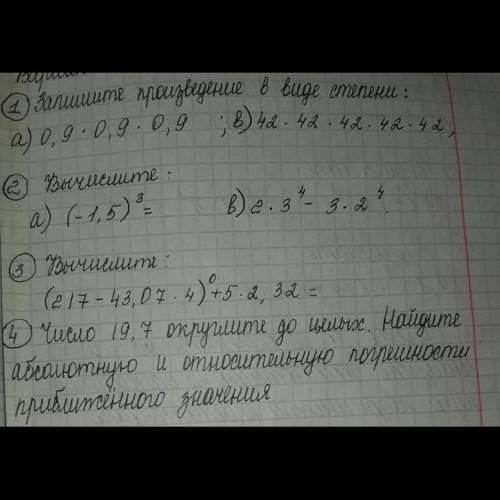 ① Запишите произведение в виде степени:
а) 0,9 · 0,9 · 0,9 ; в) 42 · 42 · 42 · 42 · 42;
② Вычислите:
а) (-1,5)³ = в) 2 · 3⁴ - 3 · 2⁴.
③ Вычислите:
(217 - 43,07 · 4)⁰ + 5 · 2,32 =
④ Число 19,7 округлите до целых. Найдите
абсолютную и относительную погрешности
приближённого значения